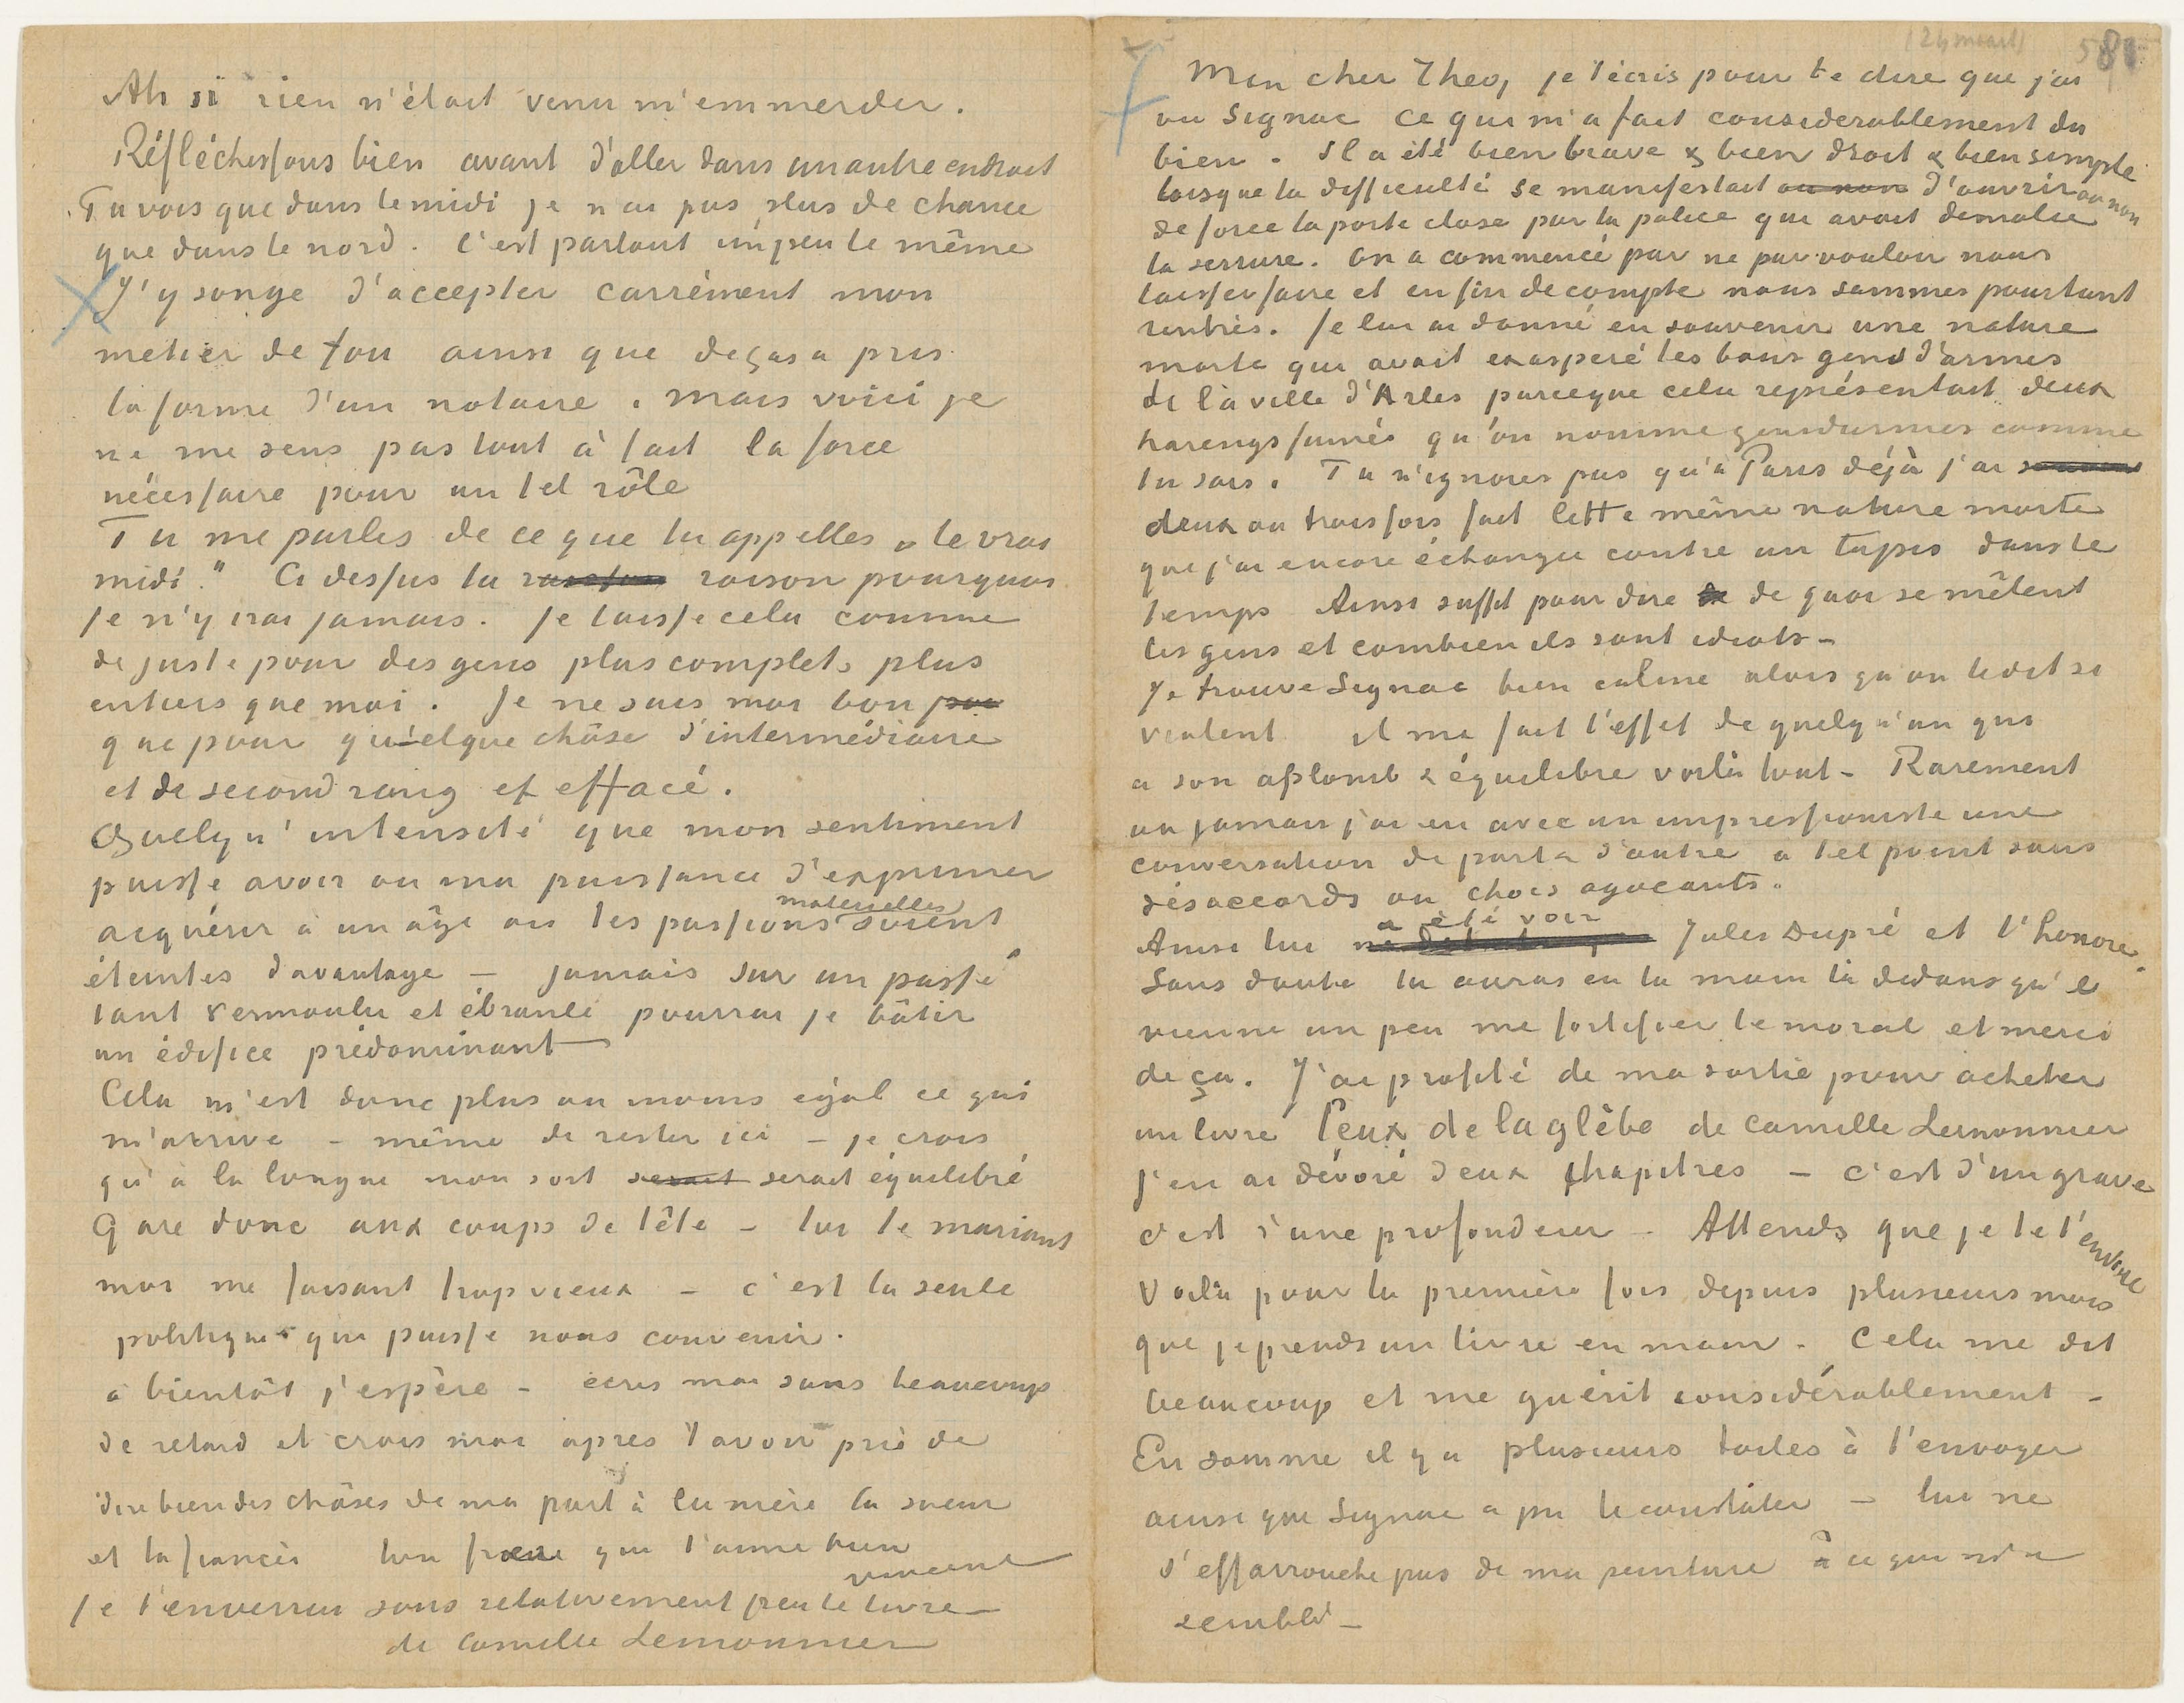 Ah si rien n'était venu m'emmerder.
Réfléchissons bien avant d'aller dans un autre endroit
Tu vois que dans le midi je n'ai pas plus de chance
que dans le nord. C'est partout un peu le même
J'y songe d'accepter carrément mon
metier de fou ainsi que degas a pris
la forme d'un notaire. mais voici je
ne me sens pas tout à fait la force
nécessaire pour un tel rôle
Tu me parles de ce que tu appelles „le vrai
midi." Ci dessus la raison pourquoi
je n'y irai jamais. Je laisse cela comme
de juste pour des gens plus complets plus
entiers que moi. Je ne suis moi bon
que pour quelque chôse d'intermédiaire
et de second rang et effacé.
Quelqu'intensité que mon sentiment
puisse avoir ou ma puissance d'exprimer
acquérir à un âge où les passions materielles soient
éteintes davantage — jamais sur un passé
tant vermoulu et ébranlé pourrai je bâtir
un édifice prédominant
Cela m'est donc plus ou moins égal ce qui
m'arrive — même de rester ici — je crois
qu'à la longue mon sort serait serait équilibré
Gare donc aux coups de tête — toi te mariant
moi me faisant trop vieux — c'est la seule
politique qui puisse nous convenir.
à bientôt j'espère — écris moi sans beaucoup
de retard et crois moi apres t'avoir prié de
dire bien des chôses de ma part à la mère la soeur
et la fiancée ton frere qui t'aime bien
Vincent
Je t'enverrai sous relativement peu le livre
de Camille Lemonnier
(24 maart) 581
Mon cher Theo, je t'écris pour te dire que j'ai
vu Signac ce qui m'a fait considerablement du
bien. Il a été bien brave & bien droit & bien simple
lorsque la difficulté se manifestait ou non d'ouvrir ou non
de force la porte close par la police qui avait demoli
la serrure. On a commencé par ne pas vouloir nous
laisser faire et en fin de compte nous sommes pourtant
rentrés. Je lui ai donné en souvenir une nature
morte qui avait exasperé les bons gend d'armes
de la ville d'Arles parceque cela représentait deux
harengs fumés qu'on nomme gendarmes comme
tu sais. Tu n'ignores pas qu'à Paris déjà j'ai
deux ou trois fois fait cette même nature morte
que j'ai encore échangée contre un tapis dans le
temps Ainsi suffit pour dire de quoi se mêlent
les gens et combien ils sont idiots —
Je trouve Signac bien calme alors qu'on le dit si
violent il me fait l'effet de quelqu'un qui
a son aplomb & équilibre voilà tout — Rarement
ou jamais j'ai eu avec un impressioniste une
conversation de part & d'autre à tel point sans
désaccords ou chocs agacants.
Ainsi lui a été voir Jules Dupré et l'honore.
Sans doute tu auras eu la main là dedans qu'il
vienne un peu me fortifier le moral et merci
de ça. J'ai profité de ma sortie pour acheter
un livre Ceux de la glèbe de Camille Lemonnier
j'en ai dévoré deux chapitres — c'est d'un grave
c'est d'une profondeur — Attends que je te l'envoie
Voilà pour la première fois depuis plusieurs mois
que je prends un livre en main — Cela me dit
beaucoup et me guérit considérablement —
En somme il y a plusieurs toiles à t'envoyer
ainsi que Signac a pu le constater — lui ne
s'effarrouche pas de ma peinture à ce qui m'a
semblé —